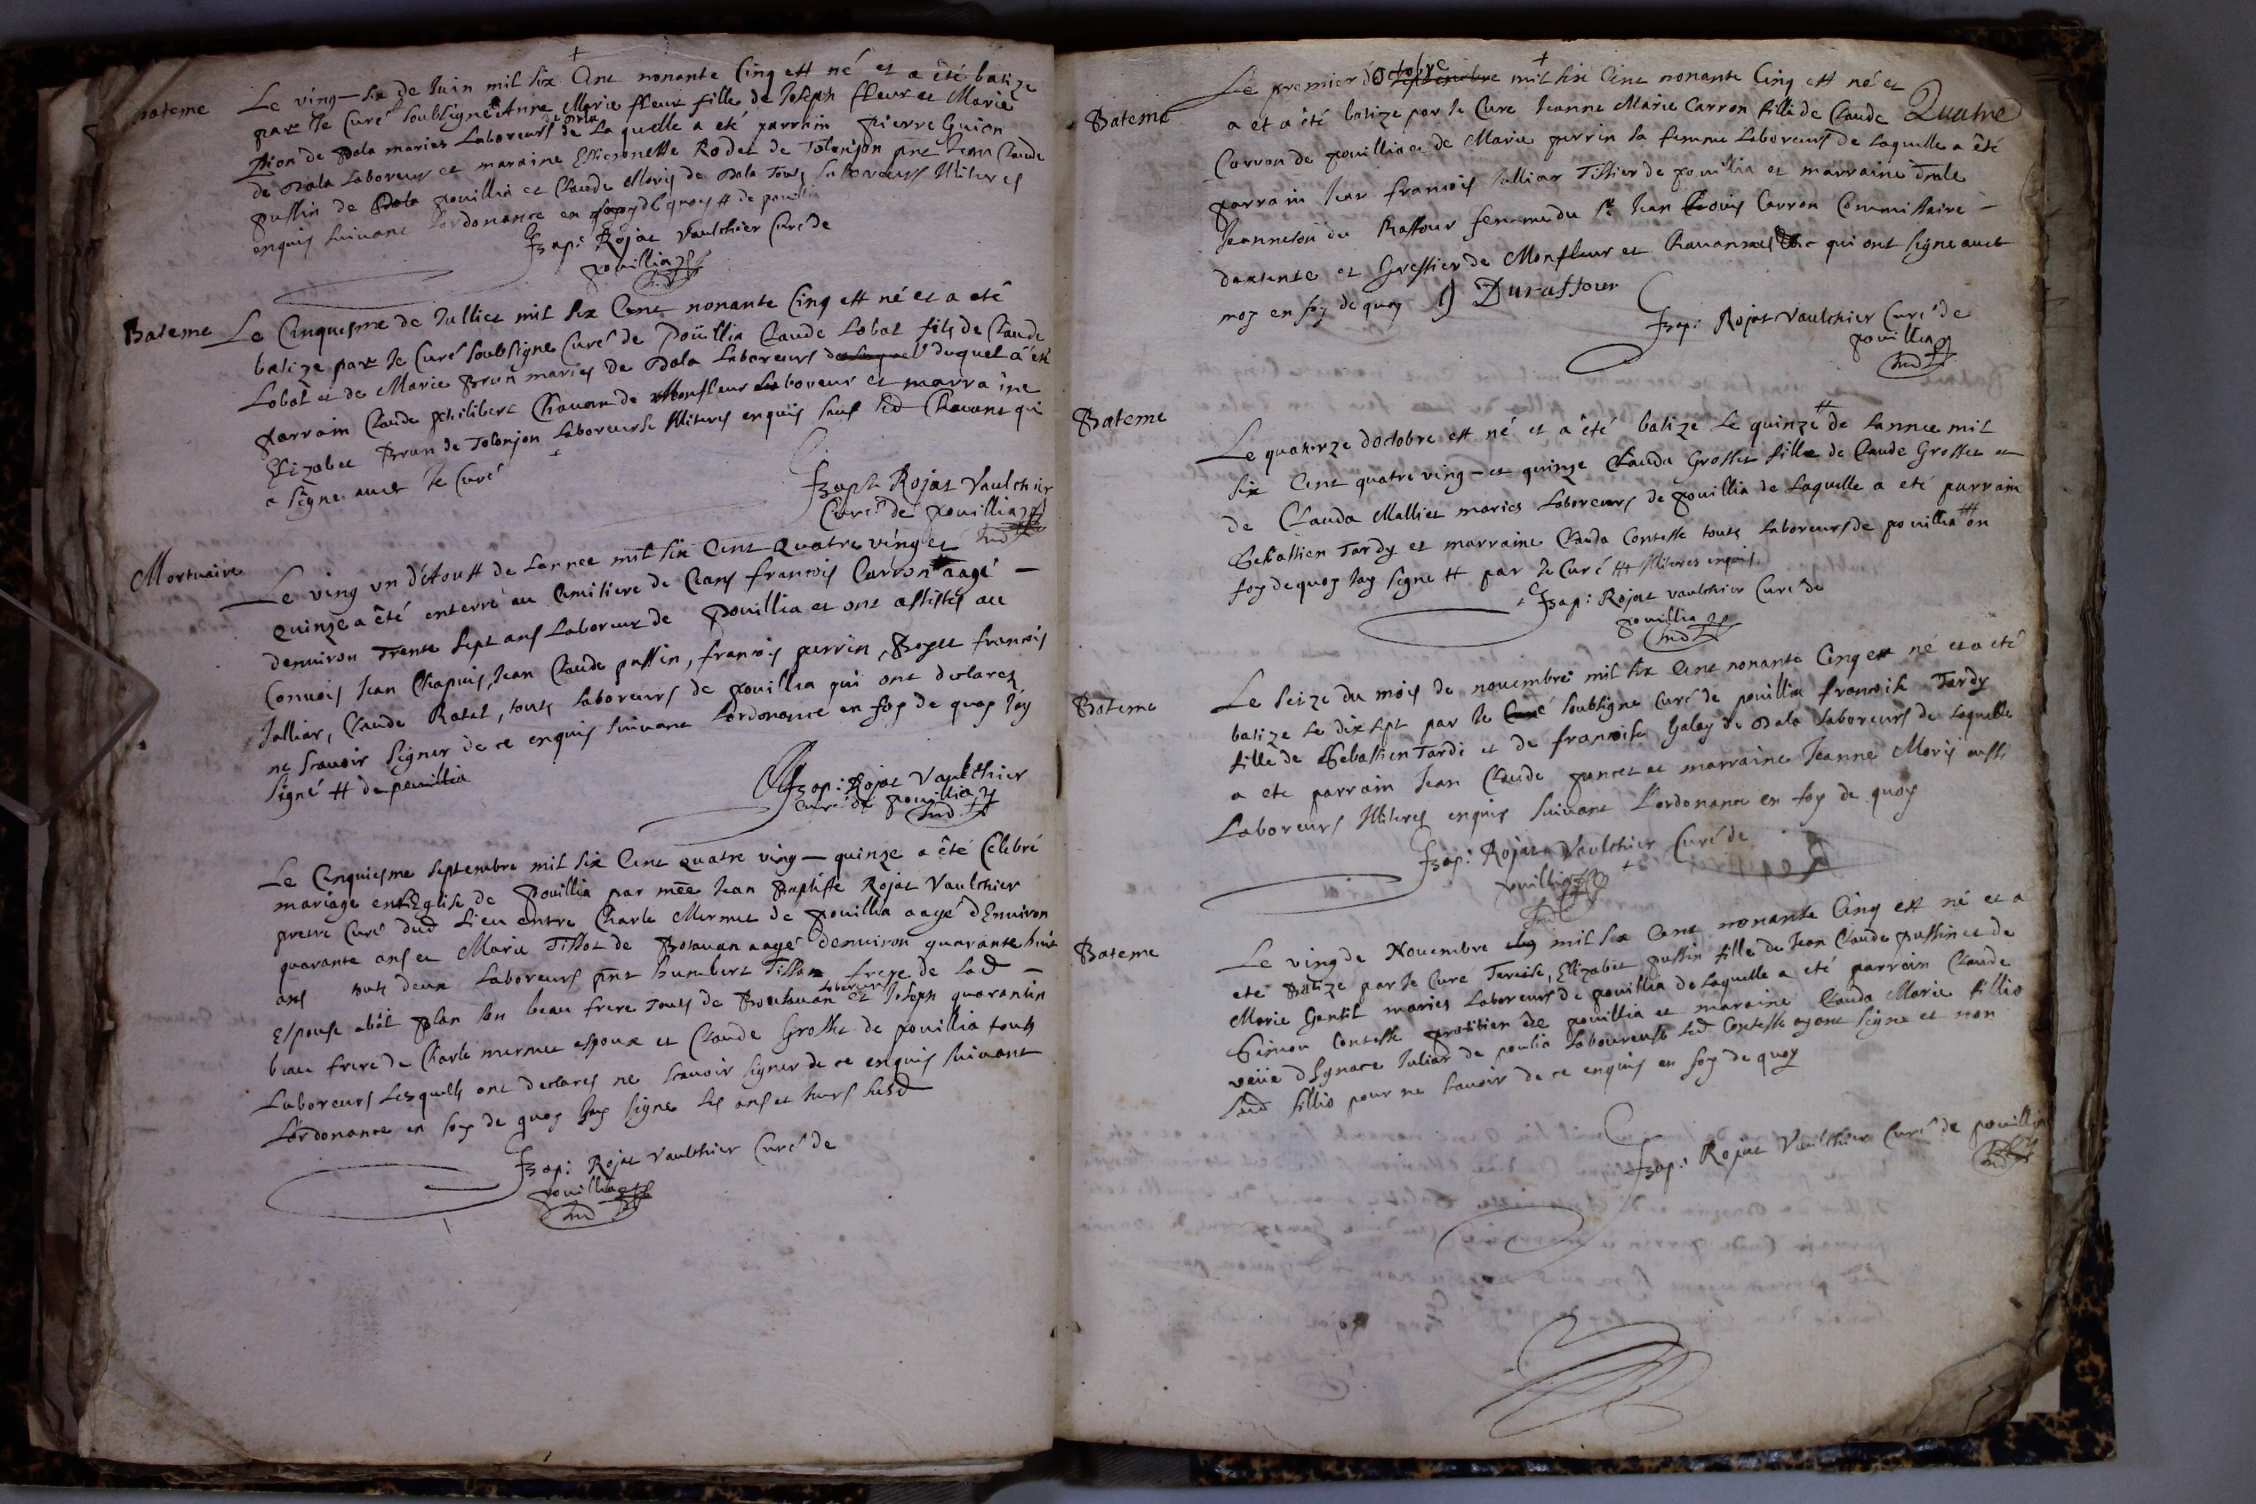 Bateme
Le ving-six de Juin mil six Cent nonante Cinq est né et a êté batize
par Je Curé soubsigne Anne Marie fleur fille de Joseph fleur et Marie
de Dala maries Laboreurs de Laquelle a eté parrain pierre Guion
de Dala Laboreur et maraine Rodet de Tolonjon pnt Jean Claude
pussin de pouillia et Claude Moris de Dala Touts Laboreurs Illiteres
enquis suivant Lordonance en foy de quoy # de pouillia
Jbap: Rojat Vaulchier Curé de
pouillia
Bateme
Le Cinquesme de Julliet mil six Cent nonante Cinq est né et a eté
batize par Je Curé soubsigne Curé de Poüillia Claude Lobat fils de Claude
Lobat et de Marie Brun maries de Dala Laboreurs duquel a eté
parrain Claude philibert Chavan de Monfleur Laboreur et marraine
Elizabet Brun de Tolonjon Laboreurse Illiteres enquis sauf Led Chavant qui
a signe avec Je Curé
Jbapt Rojat Vaulchier
Curé de pouillia
Mortuaire
Le ving un d'Aoust de Lannee mil six Cent Quatre vinget
Quinze a êté enterré au Cimitiere de Ceans francois Carron aagé -
denviron Trente sept ans Laboreur de pouillia et ont assistés au
Convois Jean Chapuis, Jean Claude pussin, francois perrin, francois
Julliar, Claude Ratel, touts Laboreurs de pouillia qui ont declarez
ne scavoir signer de ce enquis suivant Lordonance en foy de quoy Jay
signé # de pouillia
Jbap: Rojat Vaulchier
Curé de pouillia
Le Cinquiesme septembre mil six Cent quatre ving-quinze a êté Celebré
mariage en LEglise de pouillia par Jean Baptiste Rojat Vaulchier
pretre Curé dud Lieu entre Charle Mermet de pouillia aagé dEnviron
quarante ans et Marie Tissot de aagé denviron quarante huit
ans touts deux Laboreurs pnt humbert Tissot frere de Lad -
Espouse plan son beau frere Touts de Laboreurs et Joseph quarantin
beau frere de Charle mermet espoux et Claude Grosset de pouillia touts
Laboreurs Lesquells ont declares ne scavoir signer de ce enquis suivant
Lordonance en foy de quoy Jay signe Les ans et Jours susd
Jbap: Rojat Vaulchier Curé de
pouillia
Quatre
Bateme
Le premier d'Octobre septembre mil six Cent nonante Cinq est né et
a et a êté batize par Je Curé Jeanne Marie Carron fille de Claude
Carron de pouillia et de Marie perrin sa femme Laboreurs de Laquelle a êté
parrain Jean francois Julliar Tissier de pouillia et marraine
Jeanneton du Raffour femme du Sr Jean Louis Carron Commissaire -
et Greffier de Monfleur et qui ont signe avec
moy en foy de quoy J Duraffour
Jbap: Rojat Vaulchier Curé de
pouillia
Bateme
Le quatorze doctobre est né et a êté batize Le quinze de Lannee mil
six Cent quatre ving-et quinze Clauda Grosset fille de Claude Grosset et
de Clauda Malliet maries Laboreurs de pouillia de Laquelle a eté parrain
Sebastien Tardy et marraine Clauda Contesse touts Laboreurs de pouillia en
foy de quoy Jay signe # par Je Curé # Illiteres enquis
Jbap: Rojat Vaulchier Curé de
pouillia
Bateme
Le seize du mois de novembre mil six Cent nonante Cinq est né et a eté
batize Le dix sept par Je Curé soubsigne Curé de pouillia francoise Tardy
fille de Sebastien Tardi et de francoise Galey de Dala Laboreurs de Laquelle
a ete parrain Jean Claude poncet et marraine Jeanne Moris aussi
Laboreurs Illiteres enquis suivant Lordonance en foy de quoy
Jbap: Rojat Vaulchier Curé de
pouillia
Bateme
Le ving de Novembre mil six Cent nonante Cinq est né et a
eté Batize par Je Curé Elizabet pussin fille de Jean Claude pussin et de
Marie Gentil maries Laboreurs de pouillia de Laquelle a eté parrain Claude
Simon Contesse pratitien de pouillia et maraine Clauda Marie fillio
veüe dIgnace Juliar de poulia Laboureurs Led Contesse ayant signe et non
Lad fillio pour ne scavoir de ce enquis en foy de quoy
Jbap: Rojat Vaulchier Curé de pouillia